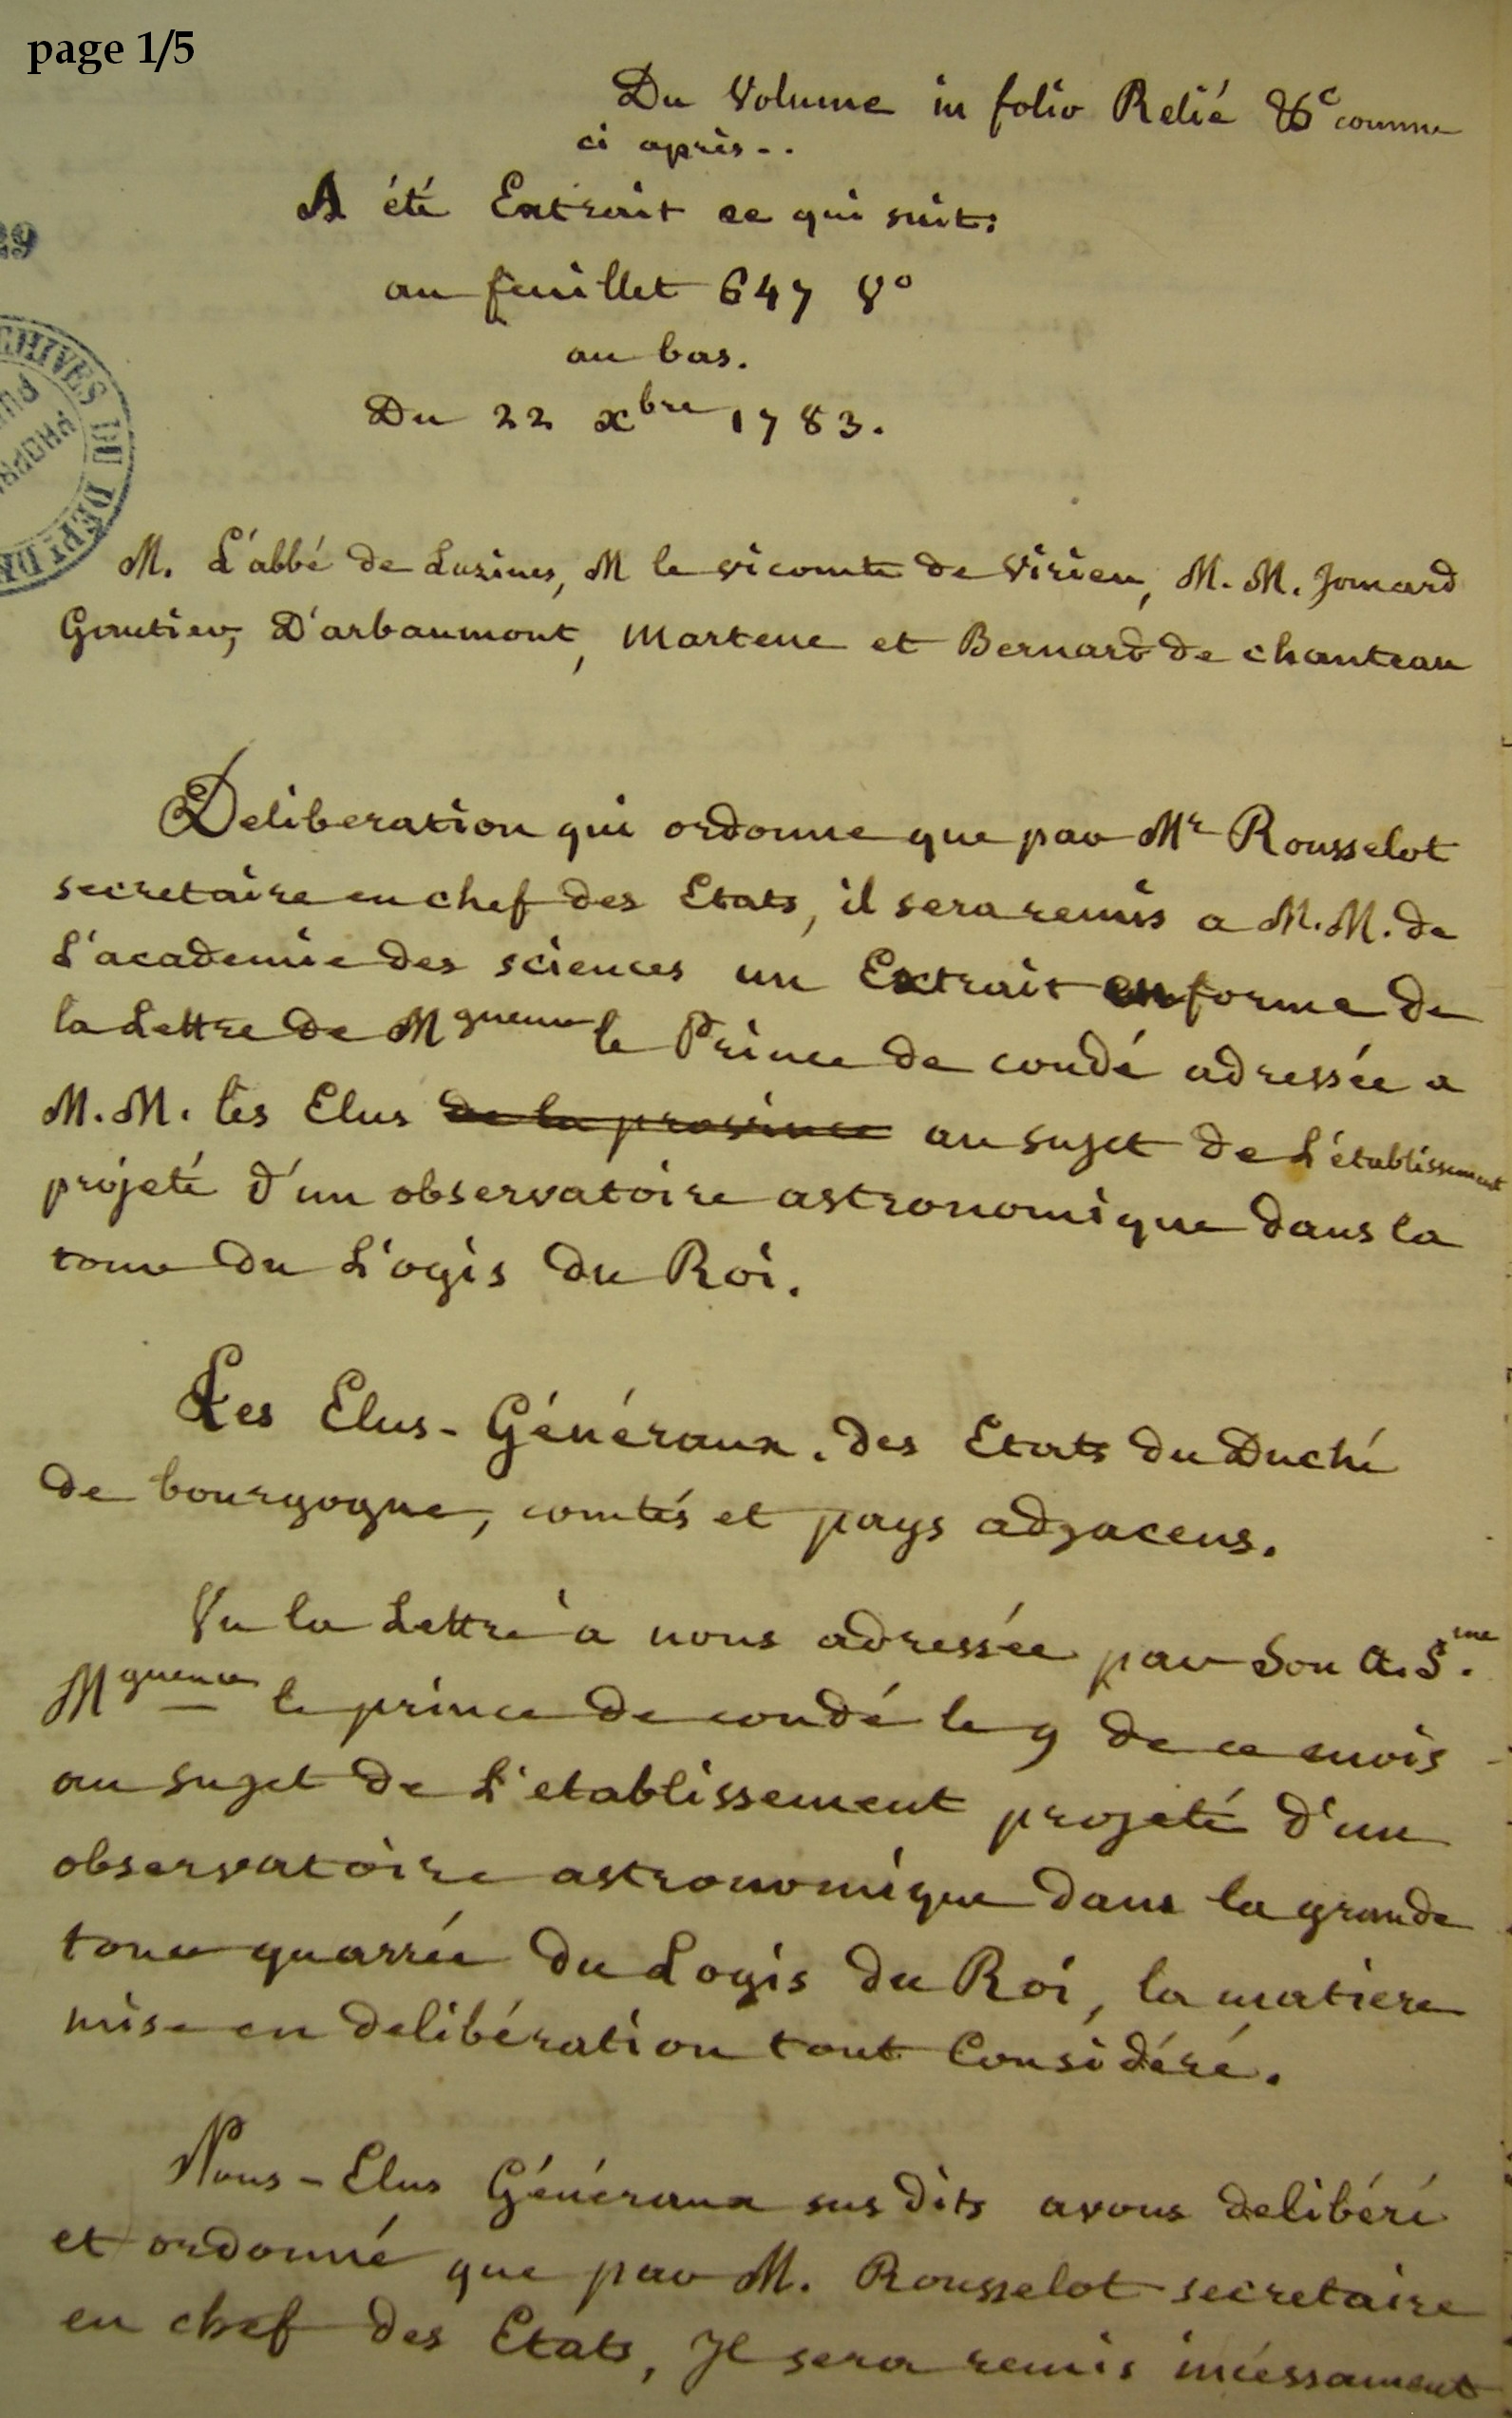 page 1/5
Du Volume in folio Relié &c comme
ci après..
A été Extrait ce qui suit:
29
au feuillet 647 Vo
au bas.
Du 22 xbre 1783.
CHIVES DU DEPt D
M. L'abbé de Luzines, M le vicomte de Virieu, M. M. Jomard
Gautier, D'arbaumont, Martene et Bernard de chanteau
Deliberation qui ordonne que par Mr Rousselot
secretaire en chef des Etats, il sera remis a M.M. de
L'academie des sciences un Extrait en forme de
la Lettre de Mgneur le Prince de condé adressée a
M.M. les Elus de la province au sujet de L'établissement
projeté d'un observatoire astronomique dans la
tour du Logis du Roi.
Les Elus-Généraux. des Etats du Duché
de bourgogne, comtés et pays adjacens.
Vu la Lettre a nous adressée par Son A.S.me
Mgneur le prince de condé le 9 de ce mois
au sujet de L'etablissement projeté d'un
observatoire astronomique dans la grande
tour quarrée du Logis du Roi, la matiere
mise en delibération tout Considéré.
Nous-Elus Généraux susdits avons delibéré
et ordonné que par M. Rousselot secretaire
en chef des Etats, Il sera remis incessament